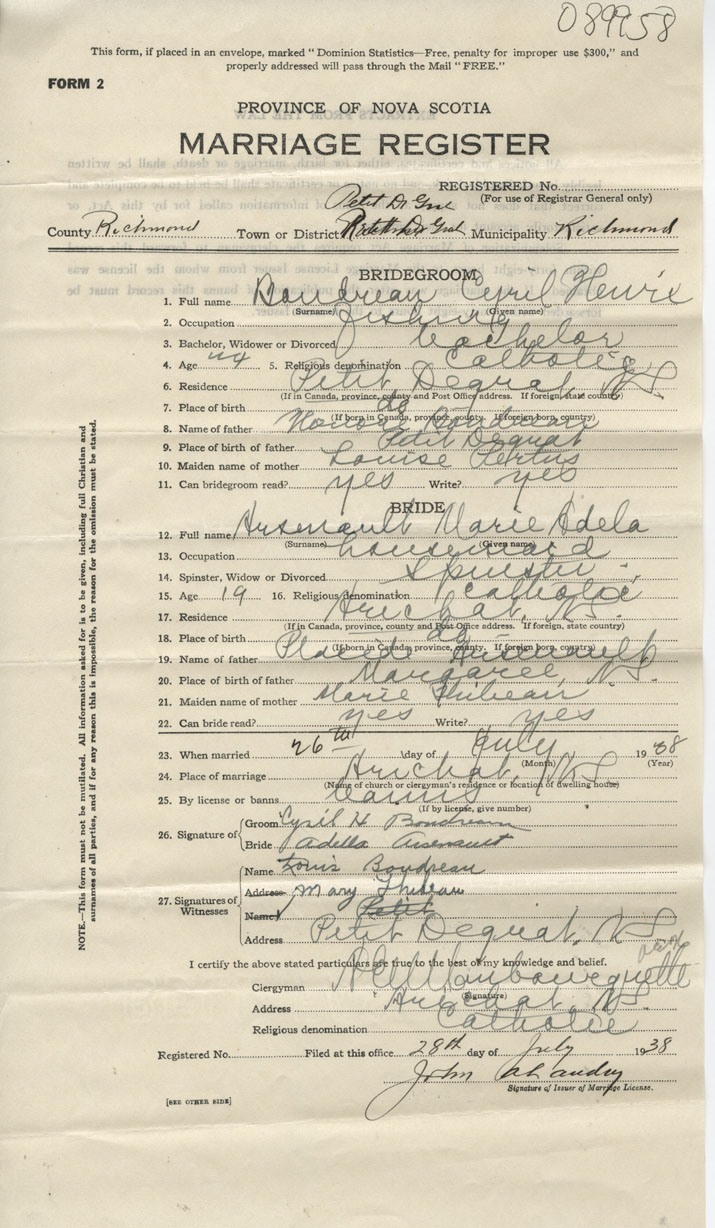 089958
This form, if placed in an envelope, marked "Dominion Statistics—Free, penalty for improper use $300," and
properly addressed will pass through the Mail "FREE."
FORM 2
PROVINCE OF NOVA SCOTIA
MARRIAGE REGISTER
REGISTERED No.
(For use of Registrar General only)
Petit De Grat
County Richmond Town or District Municipality Richmond
BRIDEGROOM
1. Full name Boudreau Cyril Henri
(Surname) (Given name)
2. Occupation fishing
3. Bachelor, Widower or Divorced bachelor
4. Age 24 5. Religious denomination Catholic
6. Residence Petit Degrat, NS
(If in Canada, province, county and Post Office address. If foreign, state county)
7. Place of birth do
(If born in Canada, province, county. If foreign born, country)
8. Name of father Boudreau
9. Place of birth of father Petit Degrat
10. Maiden name of mother Louise
11. Can bridegroom read? yes Write? yes
BRIDE
12. Full name Arsenault Marie Adela
(Surname) (Given name)
13. Occupation housemaid
14. Spinster, Widow or Divorced Spinster
15. Age 19 16. Religious denomination Catholic
17. Residence Arichat, NS
(If in Canada, province, county and Post Office address. If foreign, state country)
18. Place of birth do
(If born in Canada, province, county. If foreign born, country)
19. Name of father Placide Arsenault
20. Place of birth of father Margaree, N.S.
21. Maiden name of mother Marie Thibeau
22. Can bride read? yes Write? yes
23. When married 26th day of July 1938
(Month) (Year)
24. Place of marriage Arichat, NS
(Name of church or clergyman's residence or location of dwelling house)
25. By license or banns banns
(If by license, give number)
26. Signature of Groom Cyril H Boudreau
Bride Adella Arsenault
27. Signatures of Witnesses
Name Louis Boudreau
Address Mary Thibeau
Name Petit
Address Petit Degrat, NS
I certify the above stated particulars are true to the best of my knowledge and belief.
Clergyman
(Signature)
Address Arichat, NS
Religious denomination Catholic
Registered No. Filed at this office 28th day of July 1938
John A Landry
Signature of Issuer of Marriage License.
[SEE OTHER SIDE]
NOTE.—This form must not be mutilated. All information asked for is to be given, including full Christian and
surnames of all parties, and if for any reason this is impossible, the reason for the omission must be stated.